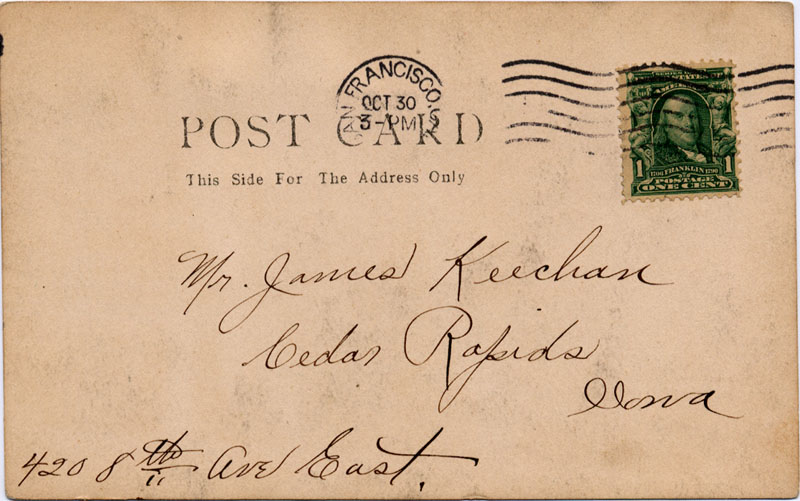 SAN FRANCISCO, C
OCT 30
3-PM
POST CARD
This Side For The Address Only
SERIES
OF AMERICA
1706 FRANKLIN 1790
1 POSTAGE 1
ONE CENT
Mr. James Keechan
Cedar Rapids
Iowa
420 8th Ave East.